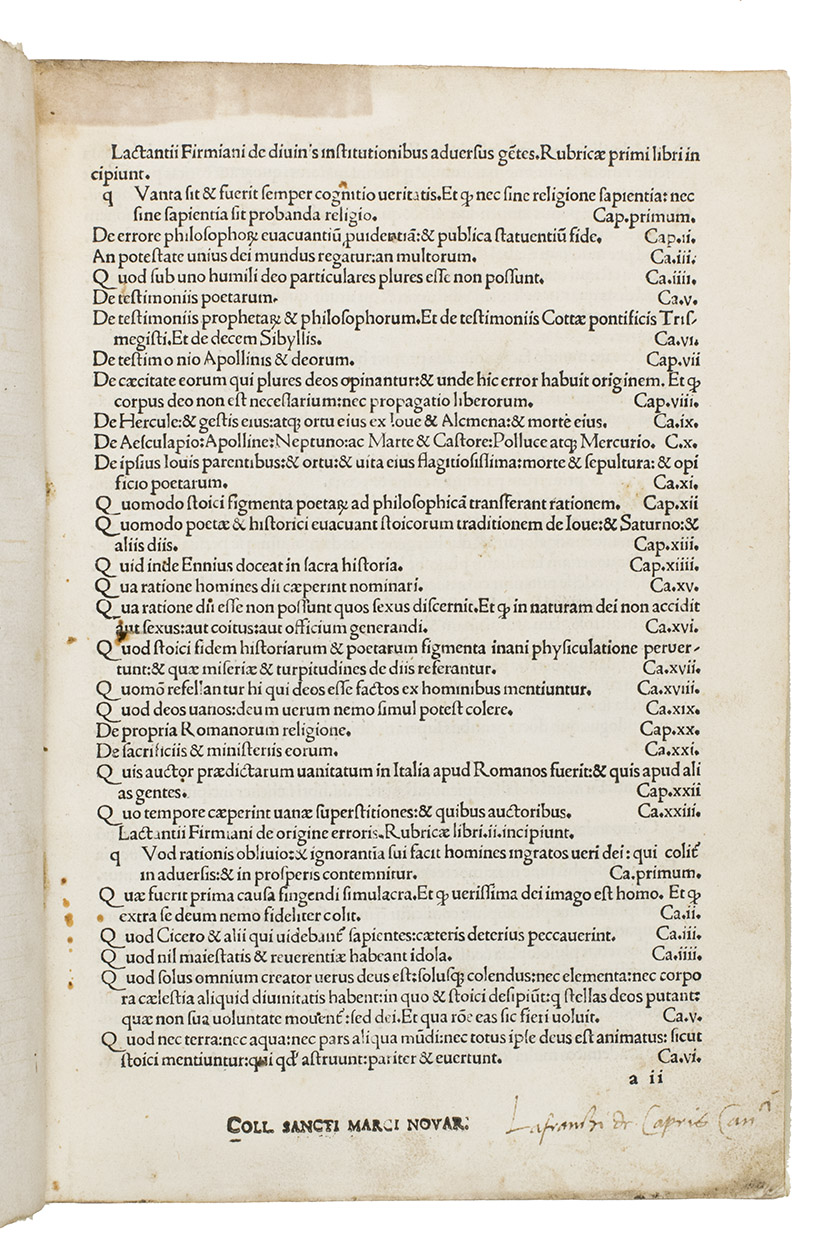 Lactantii Firmiani de diuin's institutionibus aduersus gētes.Rubricæ primi libri in
cipiunt.
q Vanta sit & fuerit semper cognitio ueritatis.Et ꝙ nec sine religione sapientia: nec
sine sapientia sit probanda religio. Cap.primum.
De errore philosophoꝝ euacuantiū,puidentiā:& publica statuentiū fide. Cap.ii.
An potestate unius dei mundus regatur:an multorum. Ca.iii.
Quod sub uno humili deo particulares plures esse non possunt. Ca.iiii.
De testimoniis poetarum. Ca.v.
De testimoniis prophetaꝝ & philosophorum.Et de testimoniis Cottæ pontificis Tris-
megisti.Et de decem Sibyllis. Ca.vi.
De testimo nio Apollinis & deorum. Cap.vii
De cæcitate eorum qui plures deos opinantur:& unde hic error habuit originem. Et ꝙ
corpus deo non est necessarium:nec propagatio liberorum. Cap.viii.
De Hercule:& gestis eius:atqꝫ ortu eius ex Ioue & Alcmena:& morte eius. Ca.ix.
De Aesculapio:Apolline:Neptuno:ac Marte & Castore:Polluce atqꝫ Mercurio. C.x.
De ipsius Iouis parentibus:& ortu:& uita eius flagitiosissima:morte & sepultura: & opi
ficio poetarum. Ca.xi.
Quomodo stoici figmenta poetaꝝ ad philosophicā transferant rationem. Cap.xii
Quomodo poetæ & historici euacuant stoicorum traditionem de Ioue:& Saturno:&
aliis diis. Cap.xiii.
Quid inde Ennius doceat in sacra historia. Cap.xiiii.
Qua ratione homines dii cæperint nominari. Ca.xv.
Qua ratione dii esse non possunt quos sexus discernit.Et ꝙ in naturam dei non accidit
aut sexus:aut coitus:aut officium generandi. Ca.xvi.
Quod stoici fidem historiarum & poetarum figmenta inani physiculatione peruer-
tunt:& quæ miseriæ & turpitudines de diis referantur. Ca.xvii.
Quomō refellantur hi qui deos esse factos ex hominibus mentiuntur. Ca.xviii.
Quod deos uanos:deum uerum nemo simul potest colere. Ca.xix.
De propria Romanorum religione. Cap.xx.
De sacrificiis & ministeriis eorum. Ca.xxi.
Quis auctor prædictarum uanitatum in Italia apud Romanos fuerit:& quis apud ali
as gentes. Cap.xxii
Quo tempore cæperint uanæ superstitiones:& quibus auctoribus. Ca.xxiii.
Lactantii Firmiani de origine erroris.Rubricæ libri.ii.incipiunt.
q Vod rationis obliuio:& ignorantia sui facit homines ingratos ueri dei: qui colit'
in aduersis:& in prosperis contemnitur. Ca.primum.
Quæ fuerit prima causa fingendi simulacra.Et ꝙ uerissima dei imago est homo. Et ꝙ
extra se deum nemo fideliter colit. Ca.ii.
Quod Cicero & alii qui uidebant' sapientes:cæteris deterius peccauerint. Ca.iii.
Quod nil maiestatis & reuerentiæ habeant idola. Ca.iiii.
Quod solus omnium creator uerus deus est:solusqꝫ colendus:nec elementa:nec corpo
ra cælestia aliquid diuinitatis habent:in quo & stoici desipiūt:q stellas deos putant:
quæ non sua uoluntate mouent':sed dei.Et qua rōe eas sic fieri uoluit. Ca.v.
Quod nec terra:nec aqua:nec pars aliqua mūdi:nec totus ipse deus est animatus: sicut
stoici mentiuntur:qui qd' astruunt:pariter & euertunt. Ca.vi.
a ii
COLL. SANCTI MARCI NOVAR:
Lafranchi de Capris Can